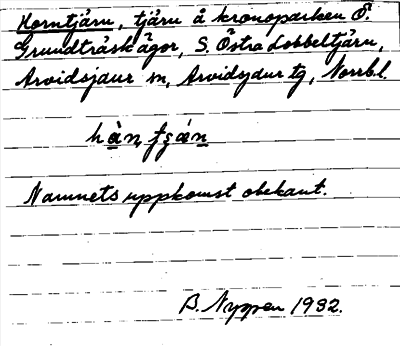 Horntjärn, tjärn å kronoparken Ö.
Grundträskågor, S. Östra Lobbeltjärn,
Arvidsjaur sn, Arvidsjaur tg, Norrb.l.
Namnets uppkomst obekant.
B. Nyppen 1932.